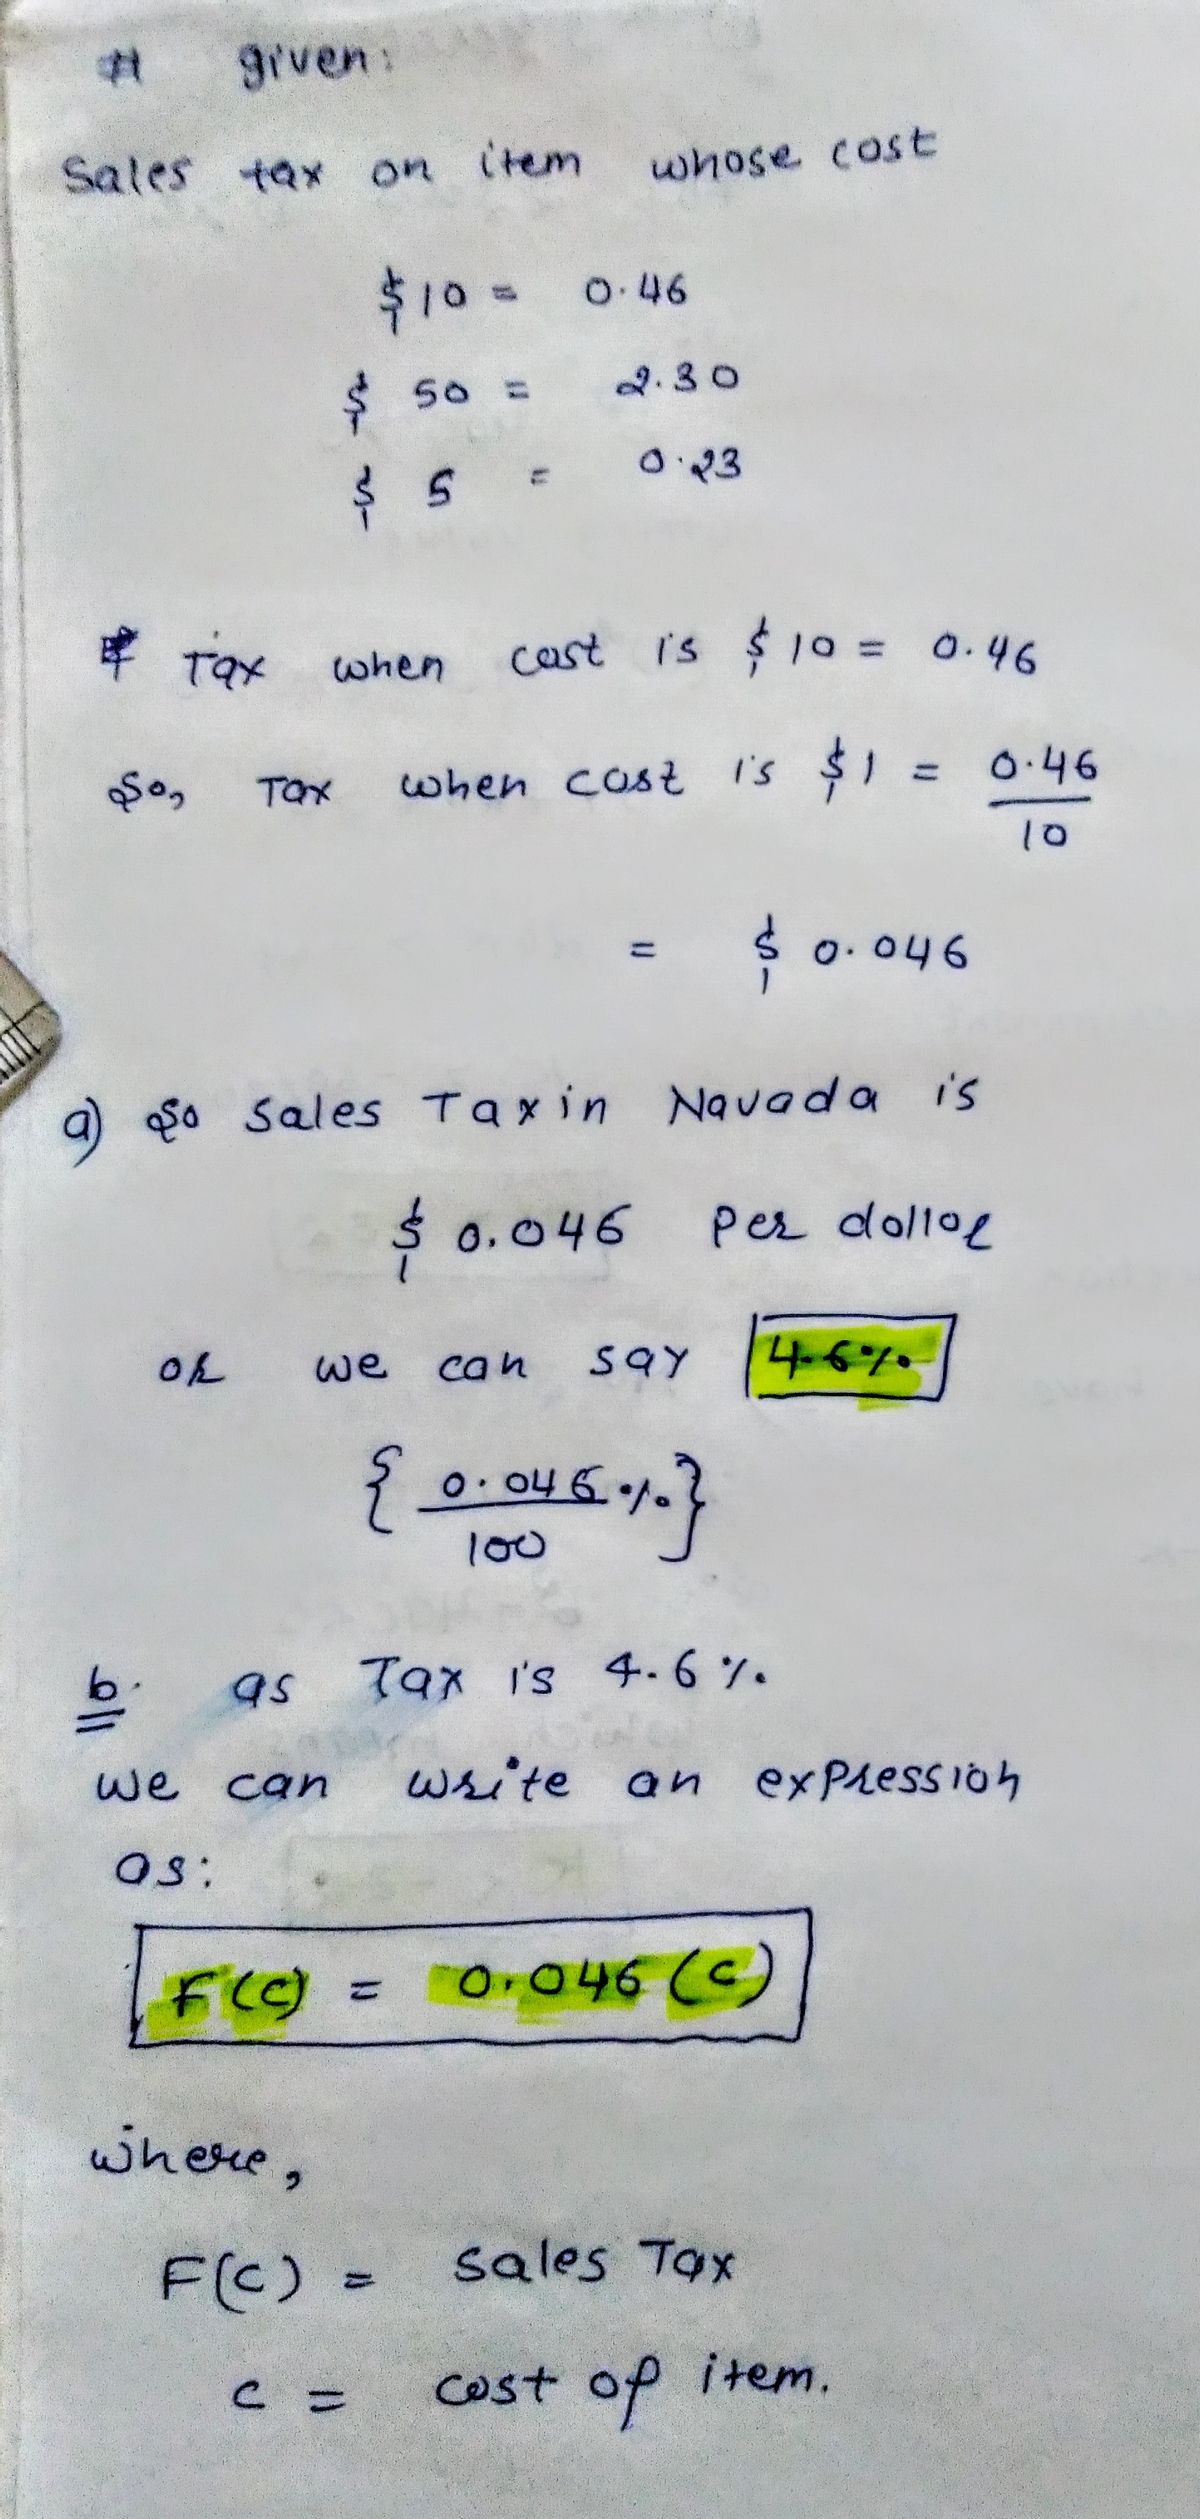 # given:
Sales tax on item whose cost
$10 = 0.46
$ 50 = 2.30
$ 5 = 0.23
# Tax when cost is $10 = 0.46
So, Tax when cost is $1 = 0.46
10
= $ 0.046
a) So Sales Tax in Navada is
$ 0.046 Per dollar
or we can say 4.6%
{ 0.046 % }
100
b. as Tax is 4.6 %
we can write an expression
as:
F(C) = 0.046 (C)
where,
F(C) = Sales Tax
C = cost of item.